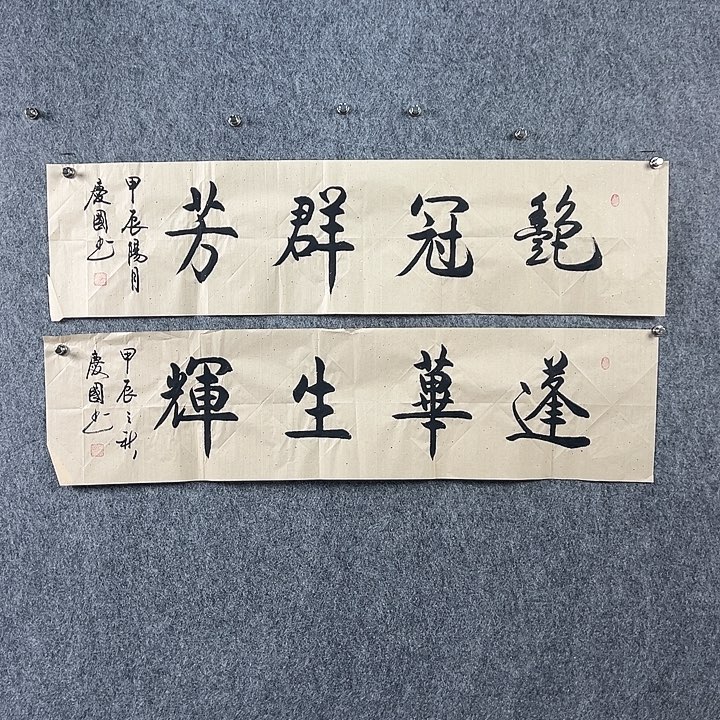 艷冠群芳
甲辰陽月
慶國书
蓬蓽生輝
甲辰之秋
慶國书